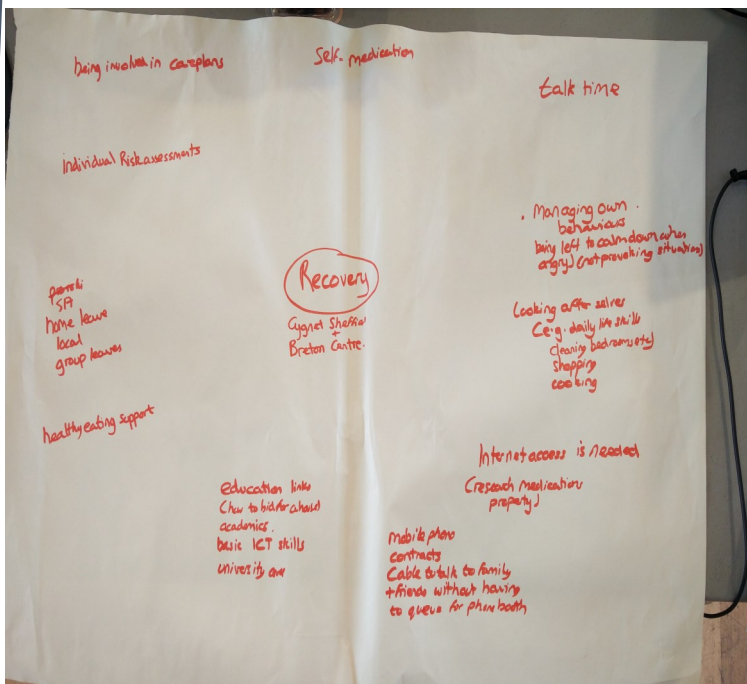 being involved in careplans
Self-medication
talk time
Individual Risk assessments
. Managing own .
behaviours
being left to calm down when
angry) (not provoking situations)
Recovery
Cygnet Sheffield
+
Breton Centre.
SA
home leave
local
group leaves
Looking after selves
(e.g. daily life skills
cleaning bedrooms etc)
shopping
cooking
healthy eating support
Internet access is needed
(research medication
property)
education links
(how to bid for a house)
academics.
basic ICT skills
university
mobile phone
contracts
Cable to talk to family
+ friends without having
to queue for phone booth